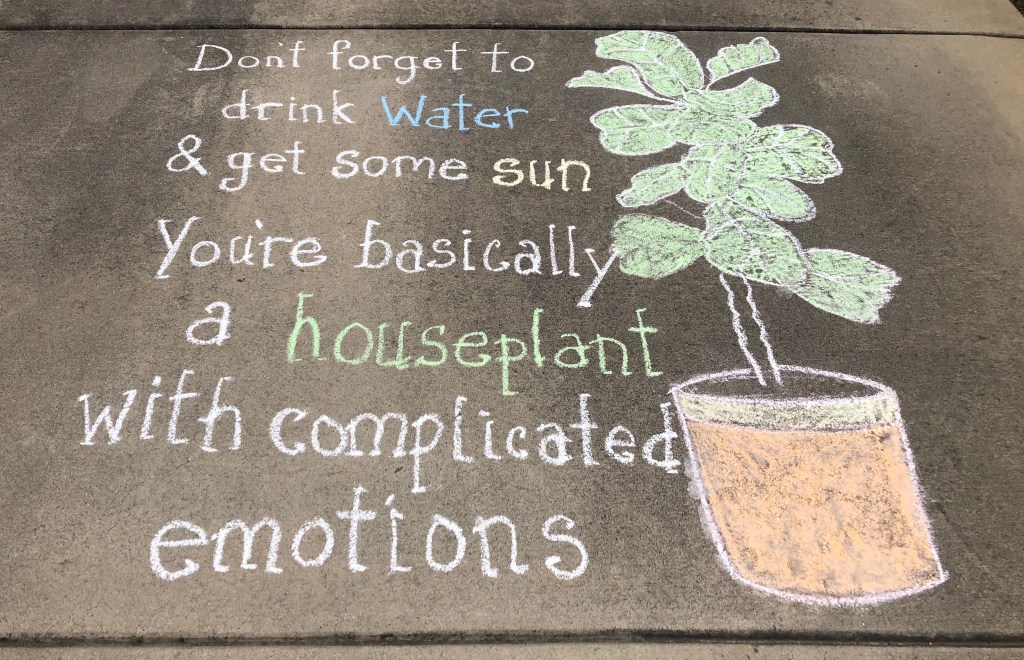 Don't forget to
drink Water
& get some sun
You're basically
a houseplant
with complicated
emotions